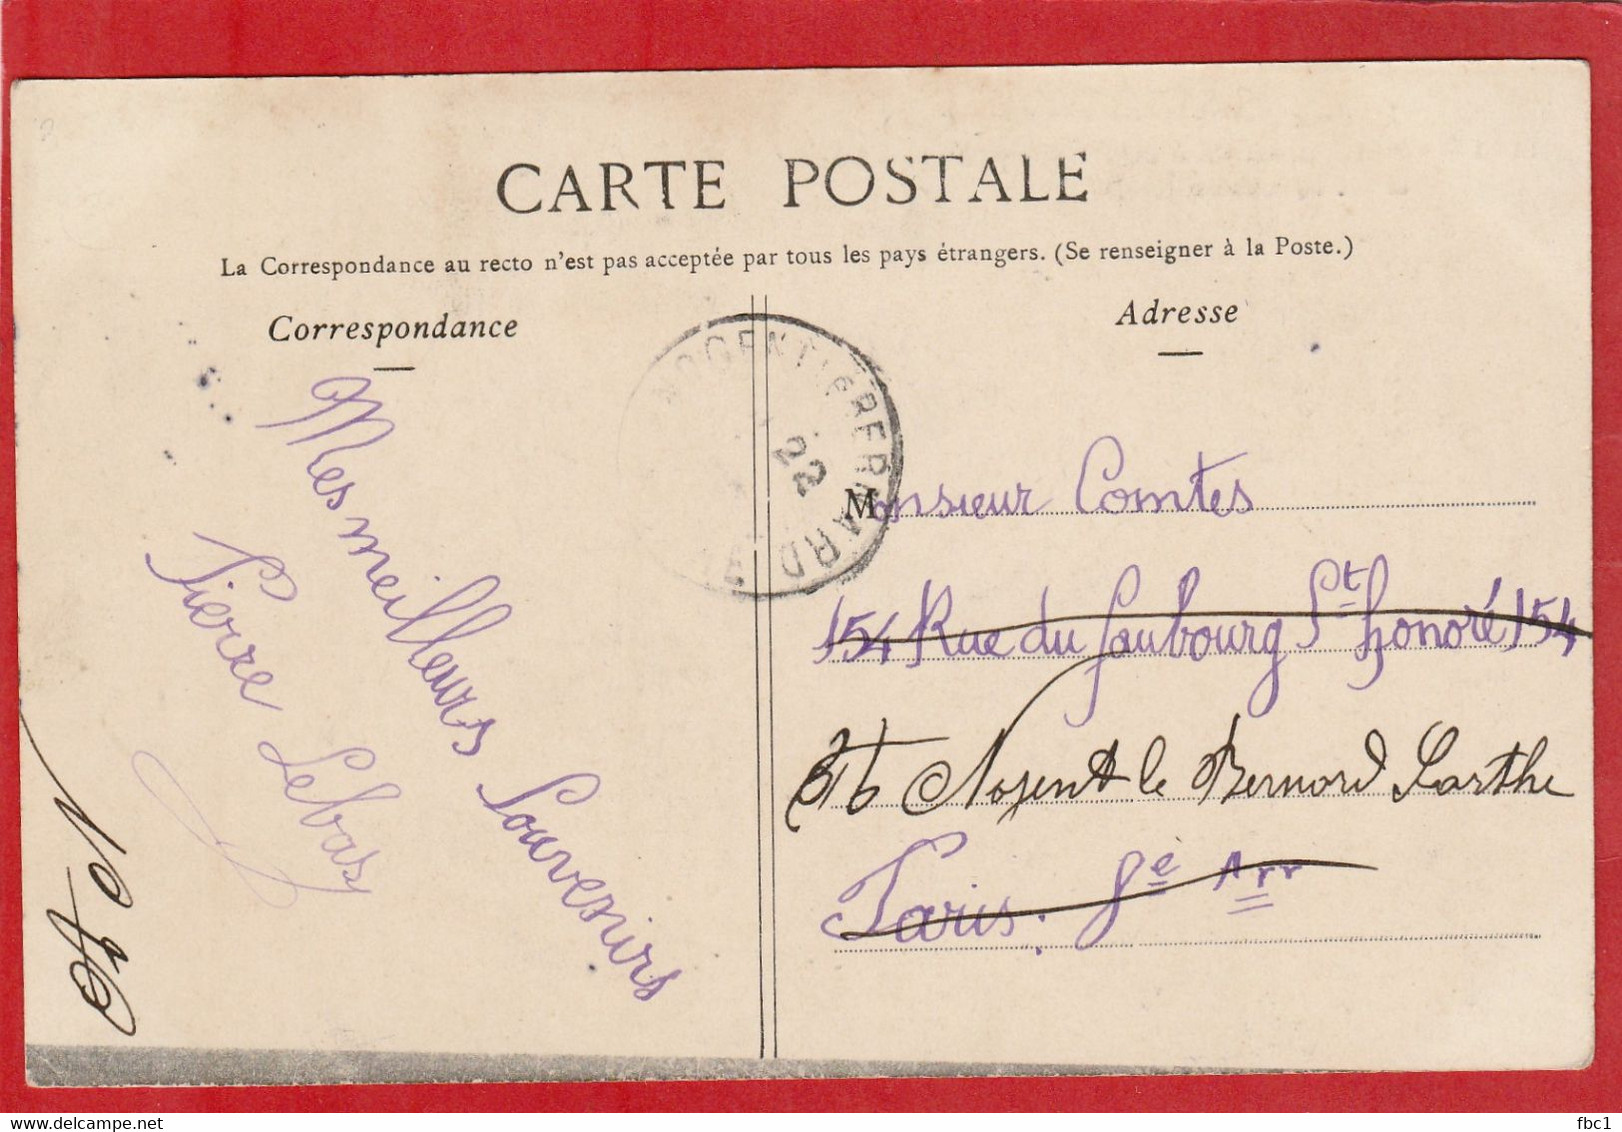 CARTE POSTALE
La Correspondance au recto n'est pas acceptée par tous les pays étrangers. (Se renseigner à la Poste.)
Correspondance
Mes meilleurs Souvenirs
Pierre Lebas
Adresse
NOGENT-LE-BERNARD
22
Monsieur Comtes
154 Rue du Faubourg St Honoré 154
Nogent le Bernard Sarthe
Paris. 8e Arr
fbc1